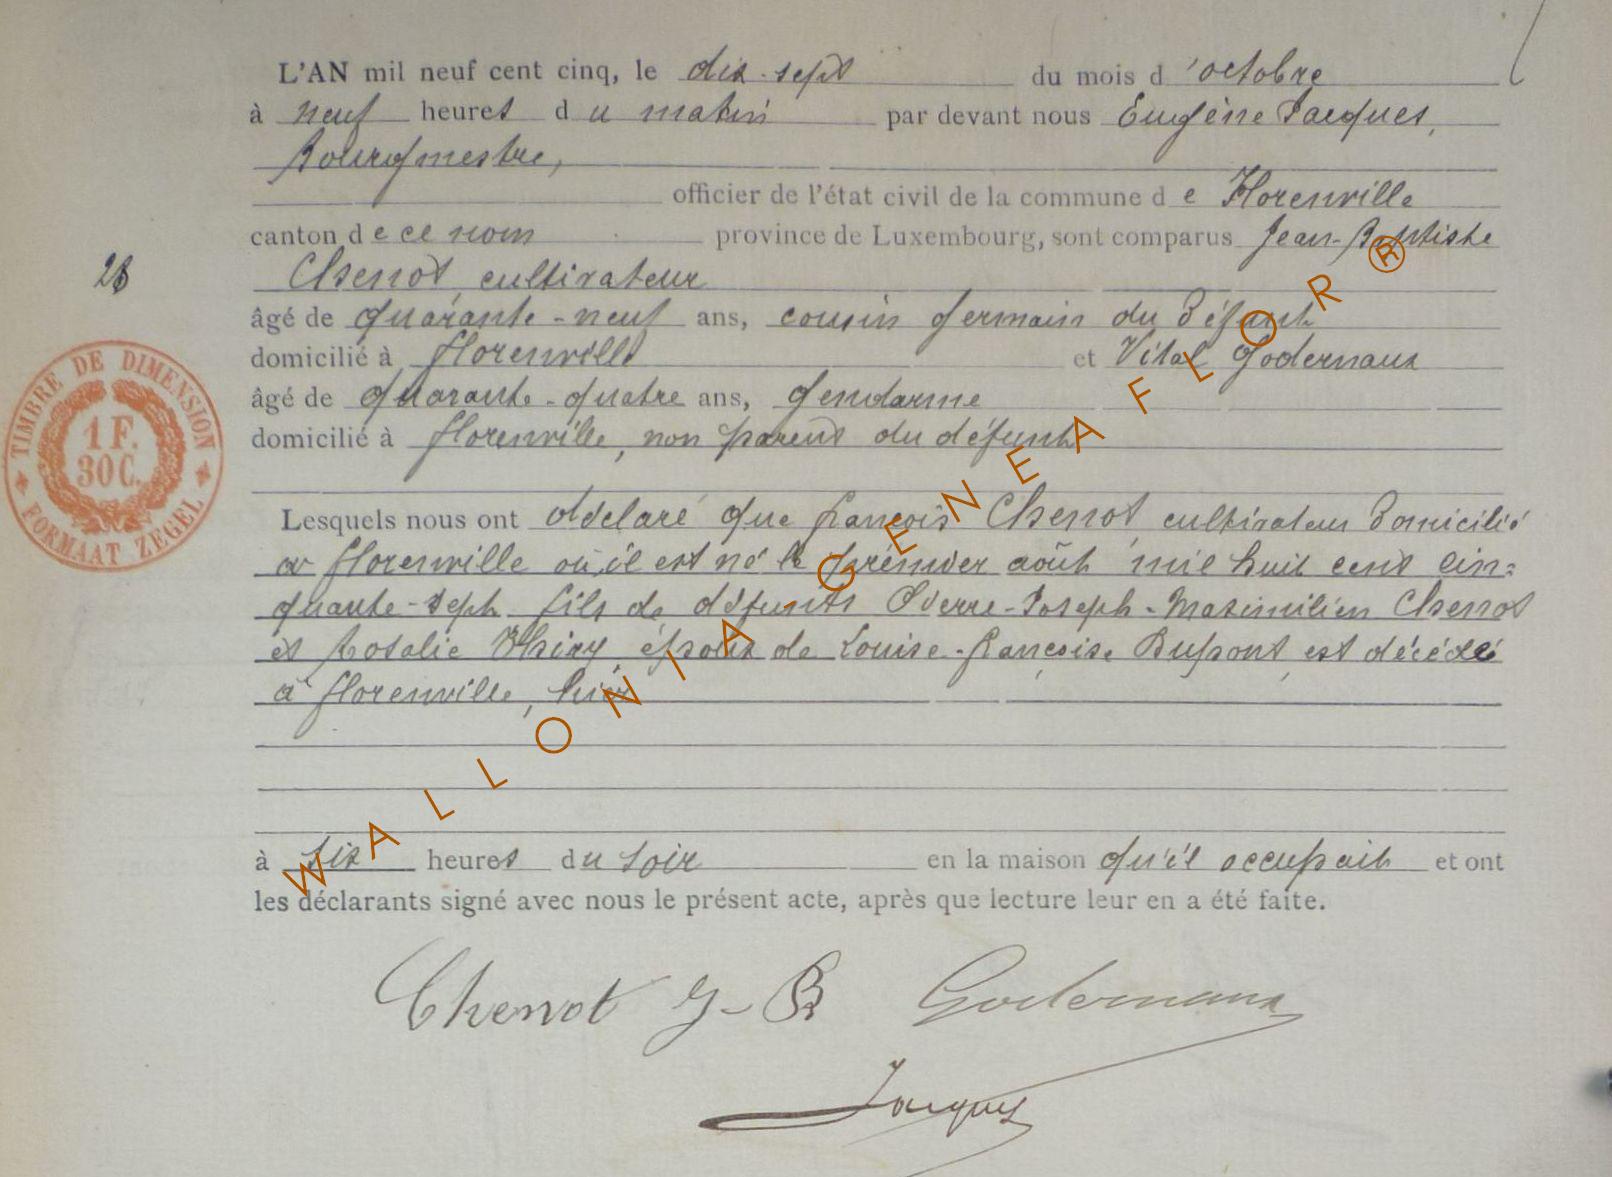 L'AN mil neuf cent cinq, le dix-sept du mois d'octobre
à neuf heures du matin par devant nous Eugène Jacques,
Bourgmestre,
officier de l'état civil de la commune de Florenville
canton de ce nom province de Luxembourg, sont comparus Jean-Baptiste
28
Chenot, cultivateur
âgé de quarante-neuf ans, cousin germain du défunt
domicilié à florenville et Vital Godernaux
âgé de quarante-quatre ans, gendarme
domicilié à florenville, non parent du défunt
Lesquels nous ont déclaré que françois Chenot, cultivateur domicilié
à florenville où il est né le premier août mil huit cent cin=
quante-sept fils de défunts Pierre-Joseph-Maximilien Chenot
et Rosalie Thiry, époux de Louise-françoise Dupont, est décédé
à florenville, hier
à six heures du soir en la maison qu'il occupait et ont
les déclarants signé avec nous le présent acte, après que lecture leur en a été faite.
Chenot J-B Godernaux
Jacques
TIMBRE DE DIMENSION
1 F.
30 C.
FORMAAT ZEGEL
WALLONIA GENEAFLOR ®